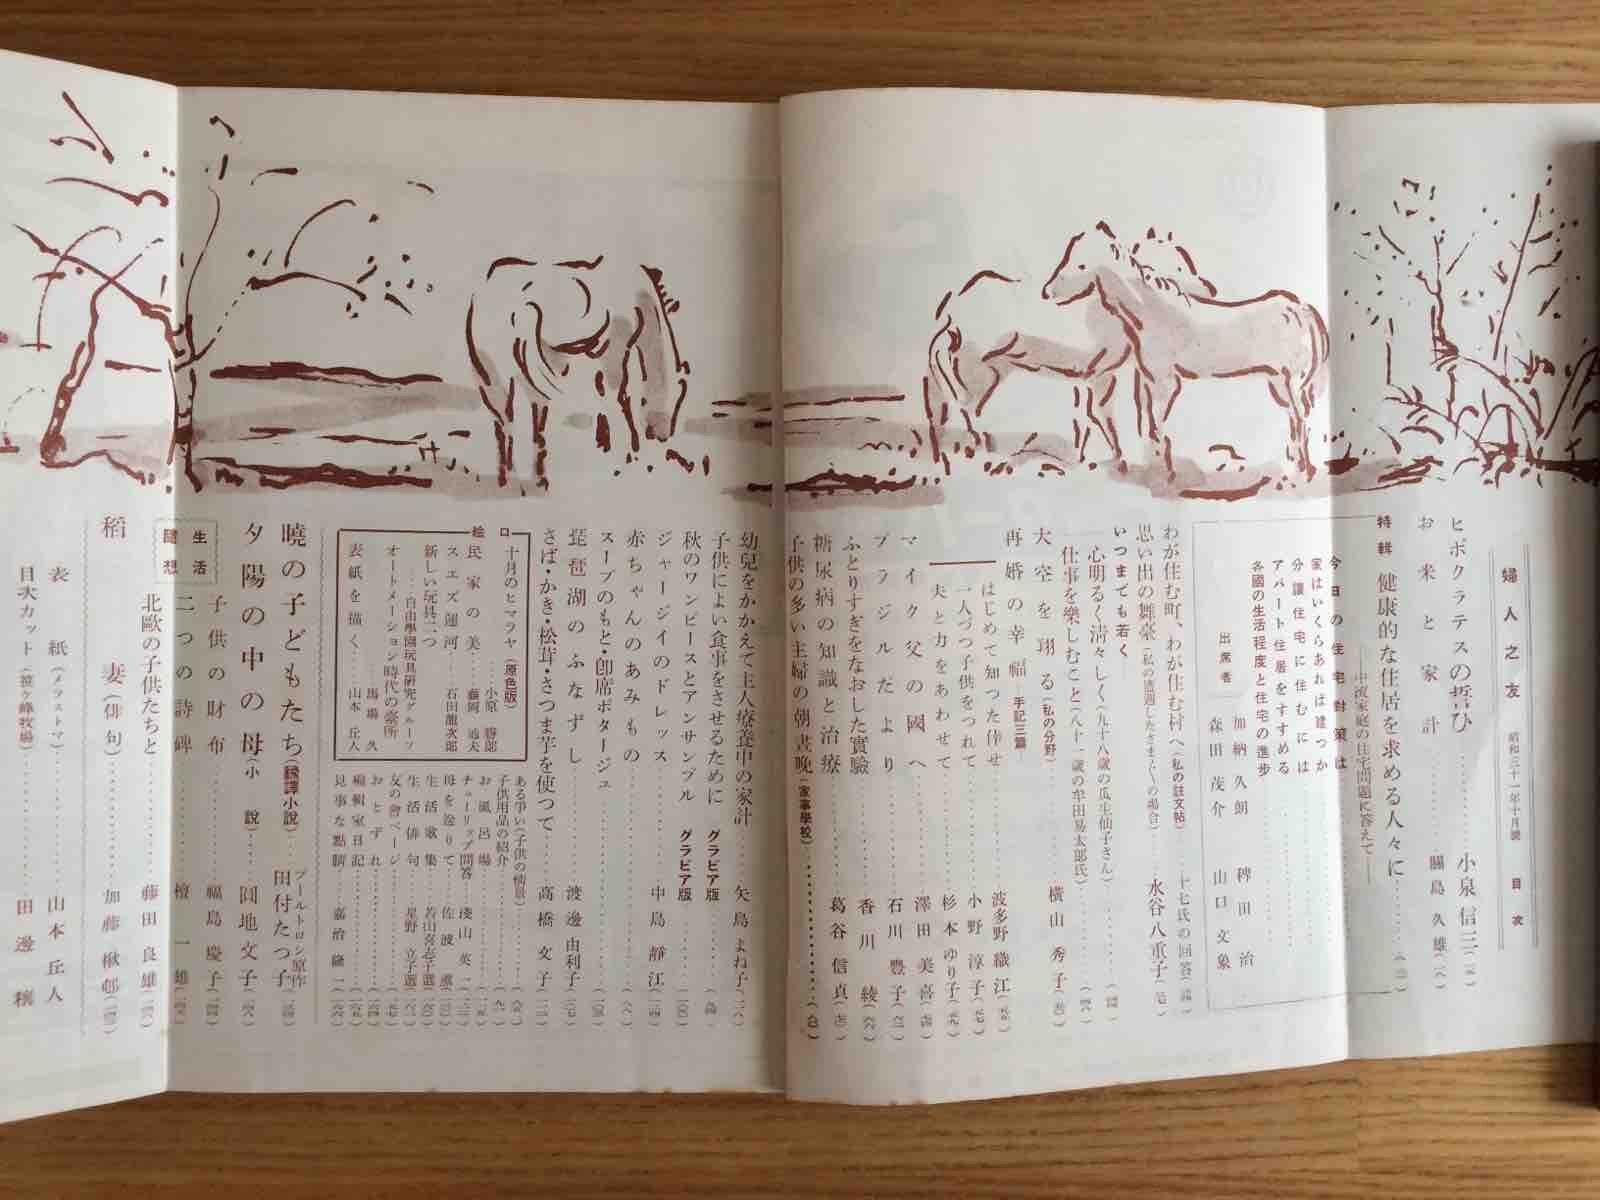 婦人之友 昭和三十一年十月號 目次
ヒポクラテスの誓ひ 小泉信三
お米と家計 關島久雄
特輯 健康的な住居を求める人々に
――中流家庭の住宅問題に答えて――
今日の住宅對策は
家はいくらあれば建つか
分讓住宅に住むには
アパート住居をすすめる
各國の生活程度と住宅の進步
出席者
加納久朗 稗田治
森田茂介 山口文象
わが住む町、わが住む村へ(私の註文帖) 十七氏の回答
思い出の舞臺(私の遭遇したさまざまの場合) 水谷八重子
いつまでも若く
心明るく淸々しく(九十八歲の瓜生仙子さん)
仕事を樂しむこと(八十一歲の牟田易太郞氏)
大空を翔る(私の分野) 橫山秀子
再婚の幸福―手記三篇
はじめて知つた倖せ 波多野織江
一人づつ子供をつれて 小野淳子
夫と力をあわせて 杉本ゆり子
マイク父の國へ 澤田美喜
ブラジルだより 石川豐子
ふとりすぎをなおした實驗 香川綾
糖尿病の知識と治療 葛谷信貞
子供の多い主婦の朝晝晚(家事學校)
幼兒をかかえて主人療養中の家計 矢島よね子
子供によい食事をさせるために グラビア版
秋のワンピースとアンサンブル グラビア版
ジャージイのドレス 中島靜江
赤ちゃんのあみもの
スープのもと・卽席ポタージュ
琵琶湖のふなずし 渡邊由利子
さば・かき・松茸・さつま芋を使つて 高橋文子
口絵
十月のヒマラヤ(原色版) 小原勝郞
民家の美 藤岡通夫
スエズ運河 石田龍次郞
新しい玩具二つ
……自由學園玩具硏究グループ
オートメーション時代の臺所 馬場久
表紙を描く 山本丘人
ある爭い(子供の情景)
子供用品の紹介
お風呂場
チューリップ問答 淺山英一
母を送りて 佐波薫
生活歌集 若山喜志子選
生活俳句 星野立子選
友の會ページ
おとずれ
編輯室日記
見事な點數 嘉治隆一
曉の子どもたち(飜譯小說) ブールトロン原作 田付たつ子
夕陽の中の母(小說) 圓地文子
生活隨想
子供の財布 福島慶子
二つの詩碑 檀一雄
北歐の子供たちと 藤田良雄
稻妻(俳句) 加藤楸邨
表紙(メラストマ) 山本丘人
目次カット(笹ケ峰牧場) 田邊穰